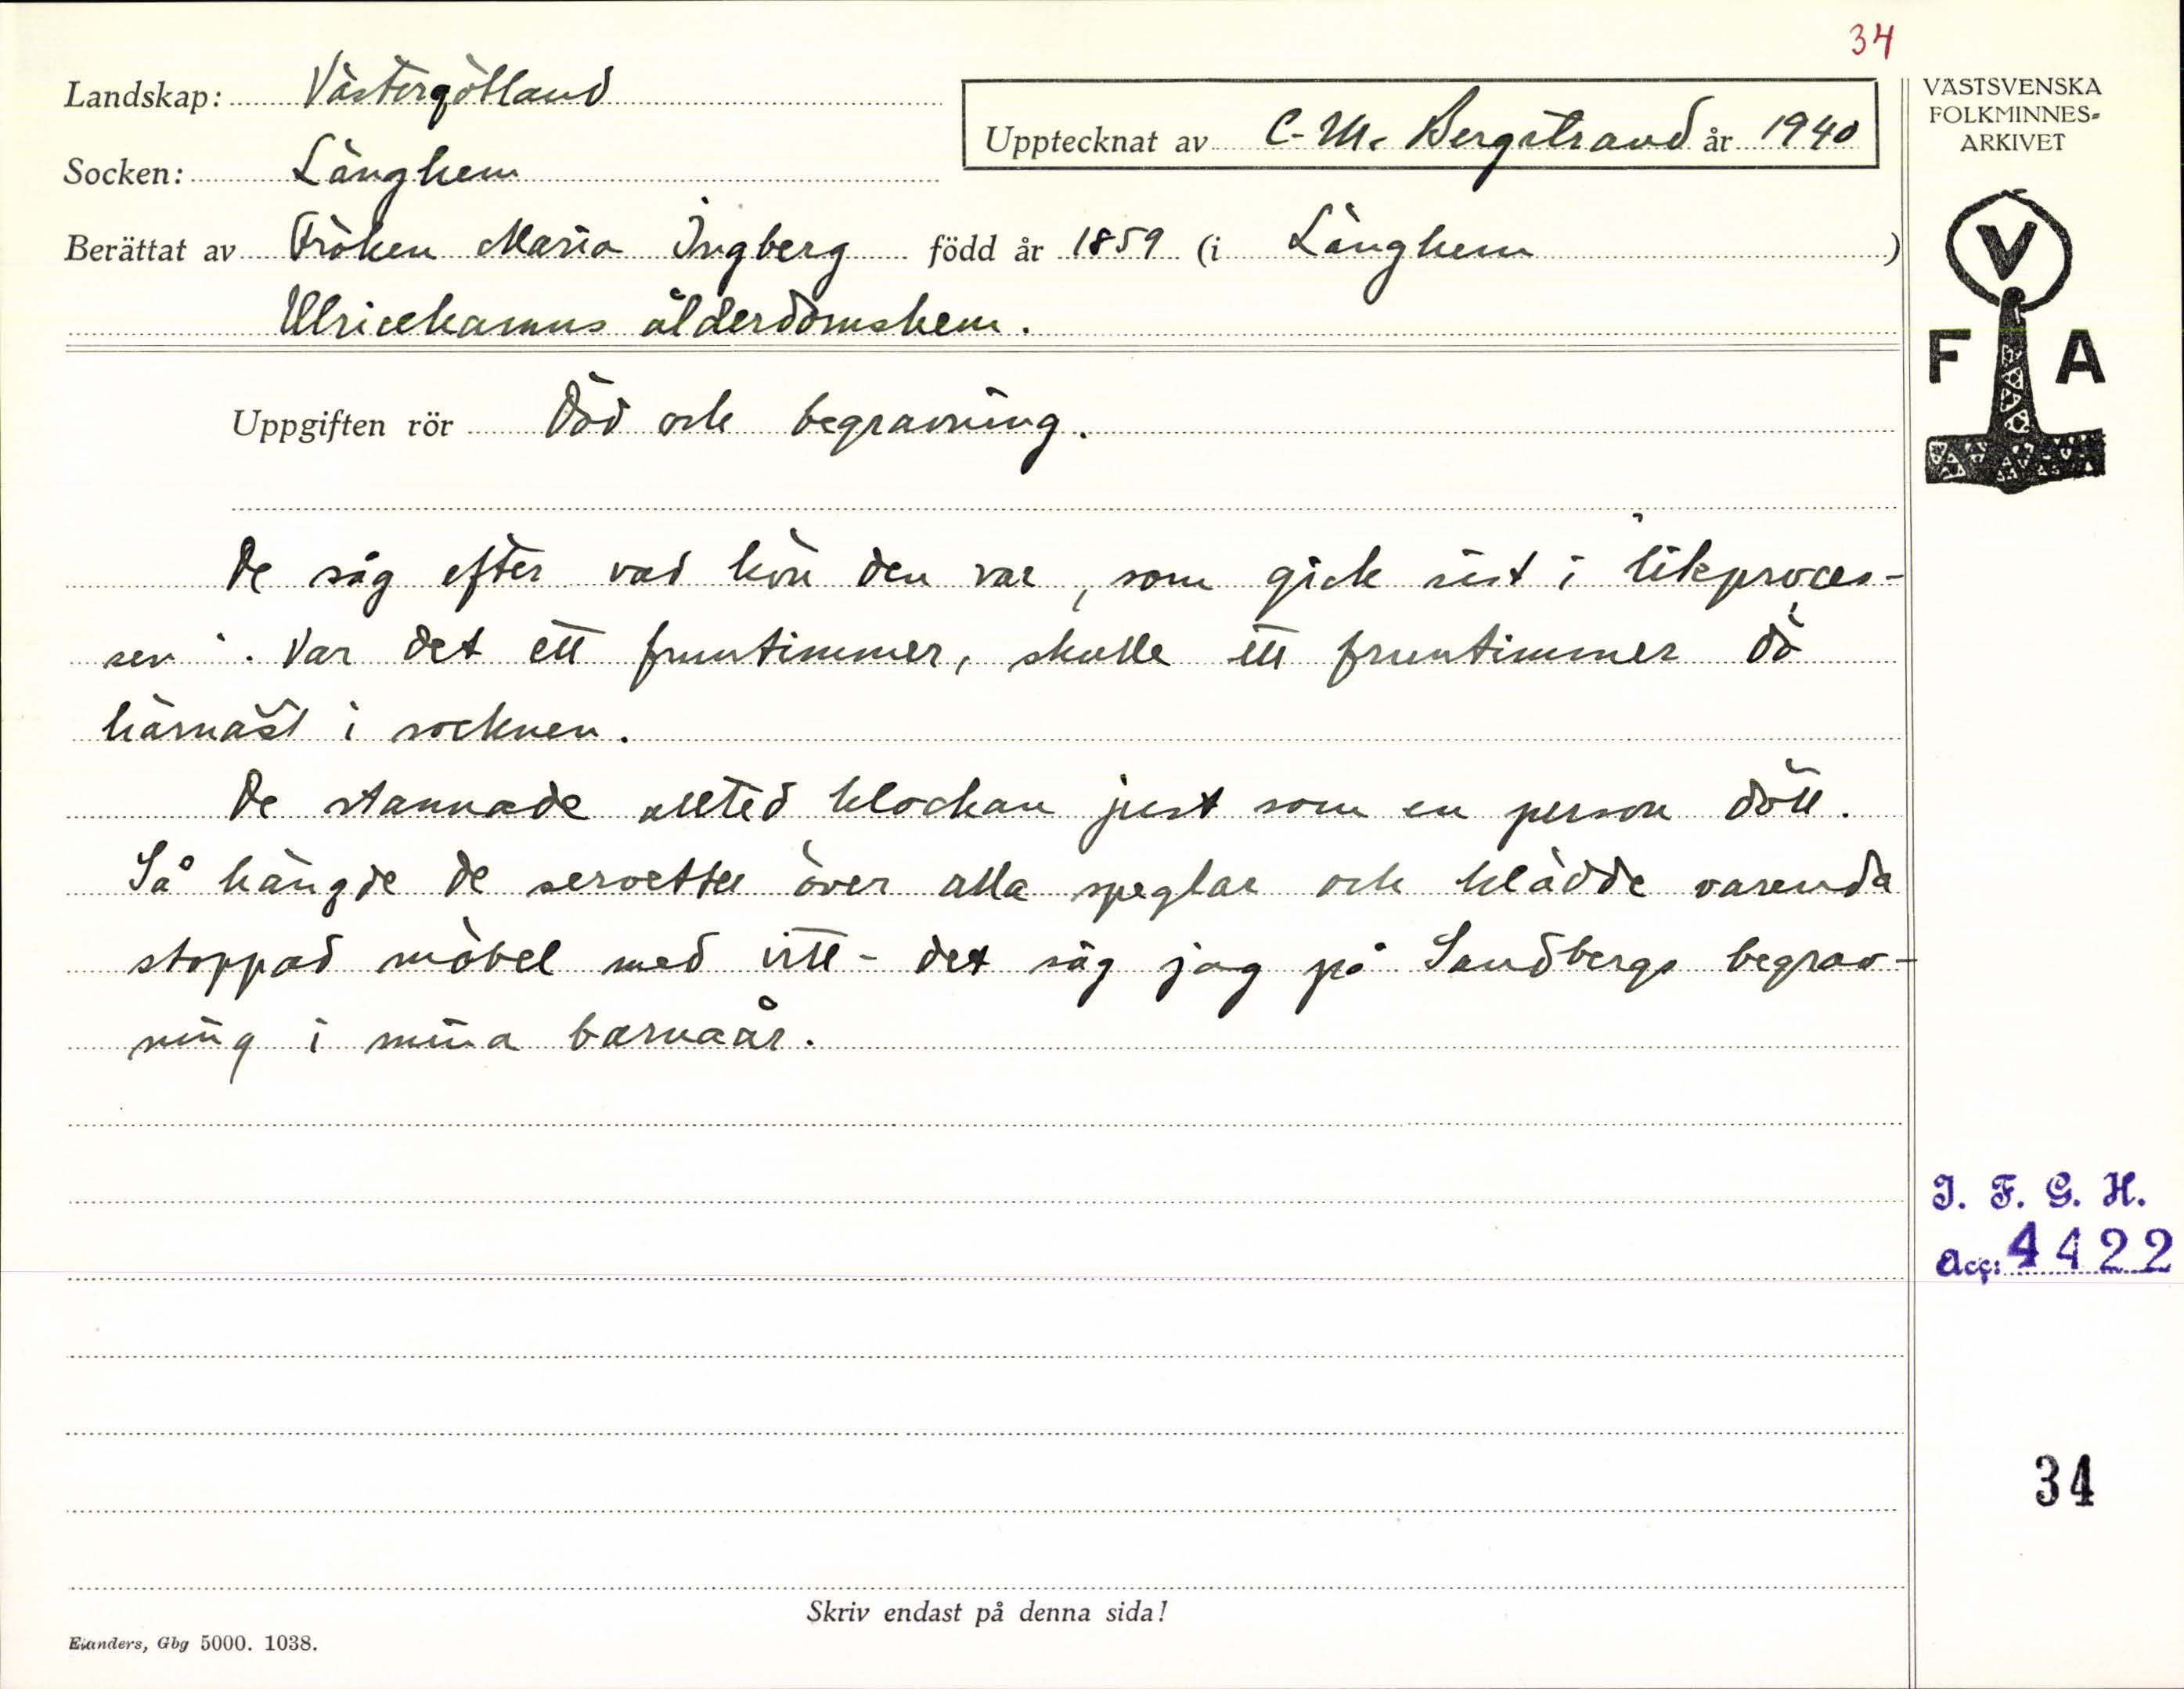 34
Landskap: Västergötland
VÄSTSVENSKA
FOLKMINNES-
ARKIVET
Upptecknat av C. M. Bergstrand år 1940
Socken: Länghem
Berättat av Fröken Maria Ingberg född år 1859 (i Länghem)
Ulricehamns ålderdomshem.
V
F A
Uppgiften rör Död och begravning.
De såg efter vad kön den var, som gick sist i "likproces-
sen". Var det ett fruntimmer, skulle ett fruntimmer dö
härnäst i socknen.
De stannade alltid klockan just som en person dött.
Så hängde de servetter över alla speglar och klädde varenda
stoppad möbel med vitt - det såg jag på Sandbergs begrav-
ning i mina barnaår.
I. F. G. H.
Acc: 4422
34
Skriv endast på denna sida!
Elanders, Gbg 5000. 1038.